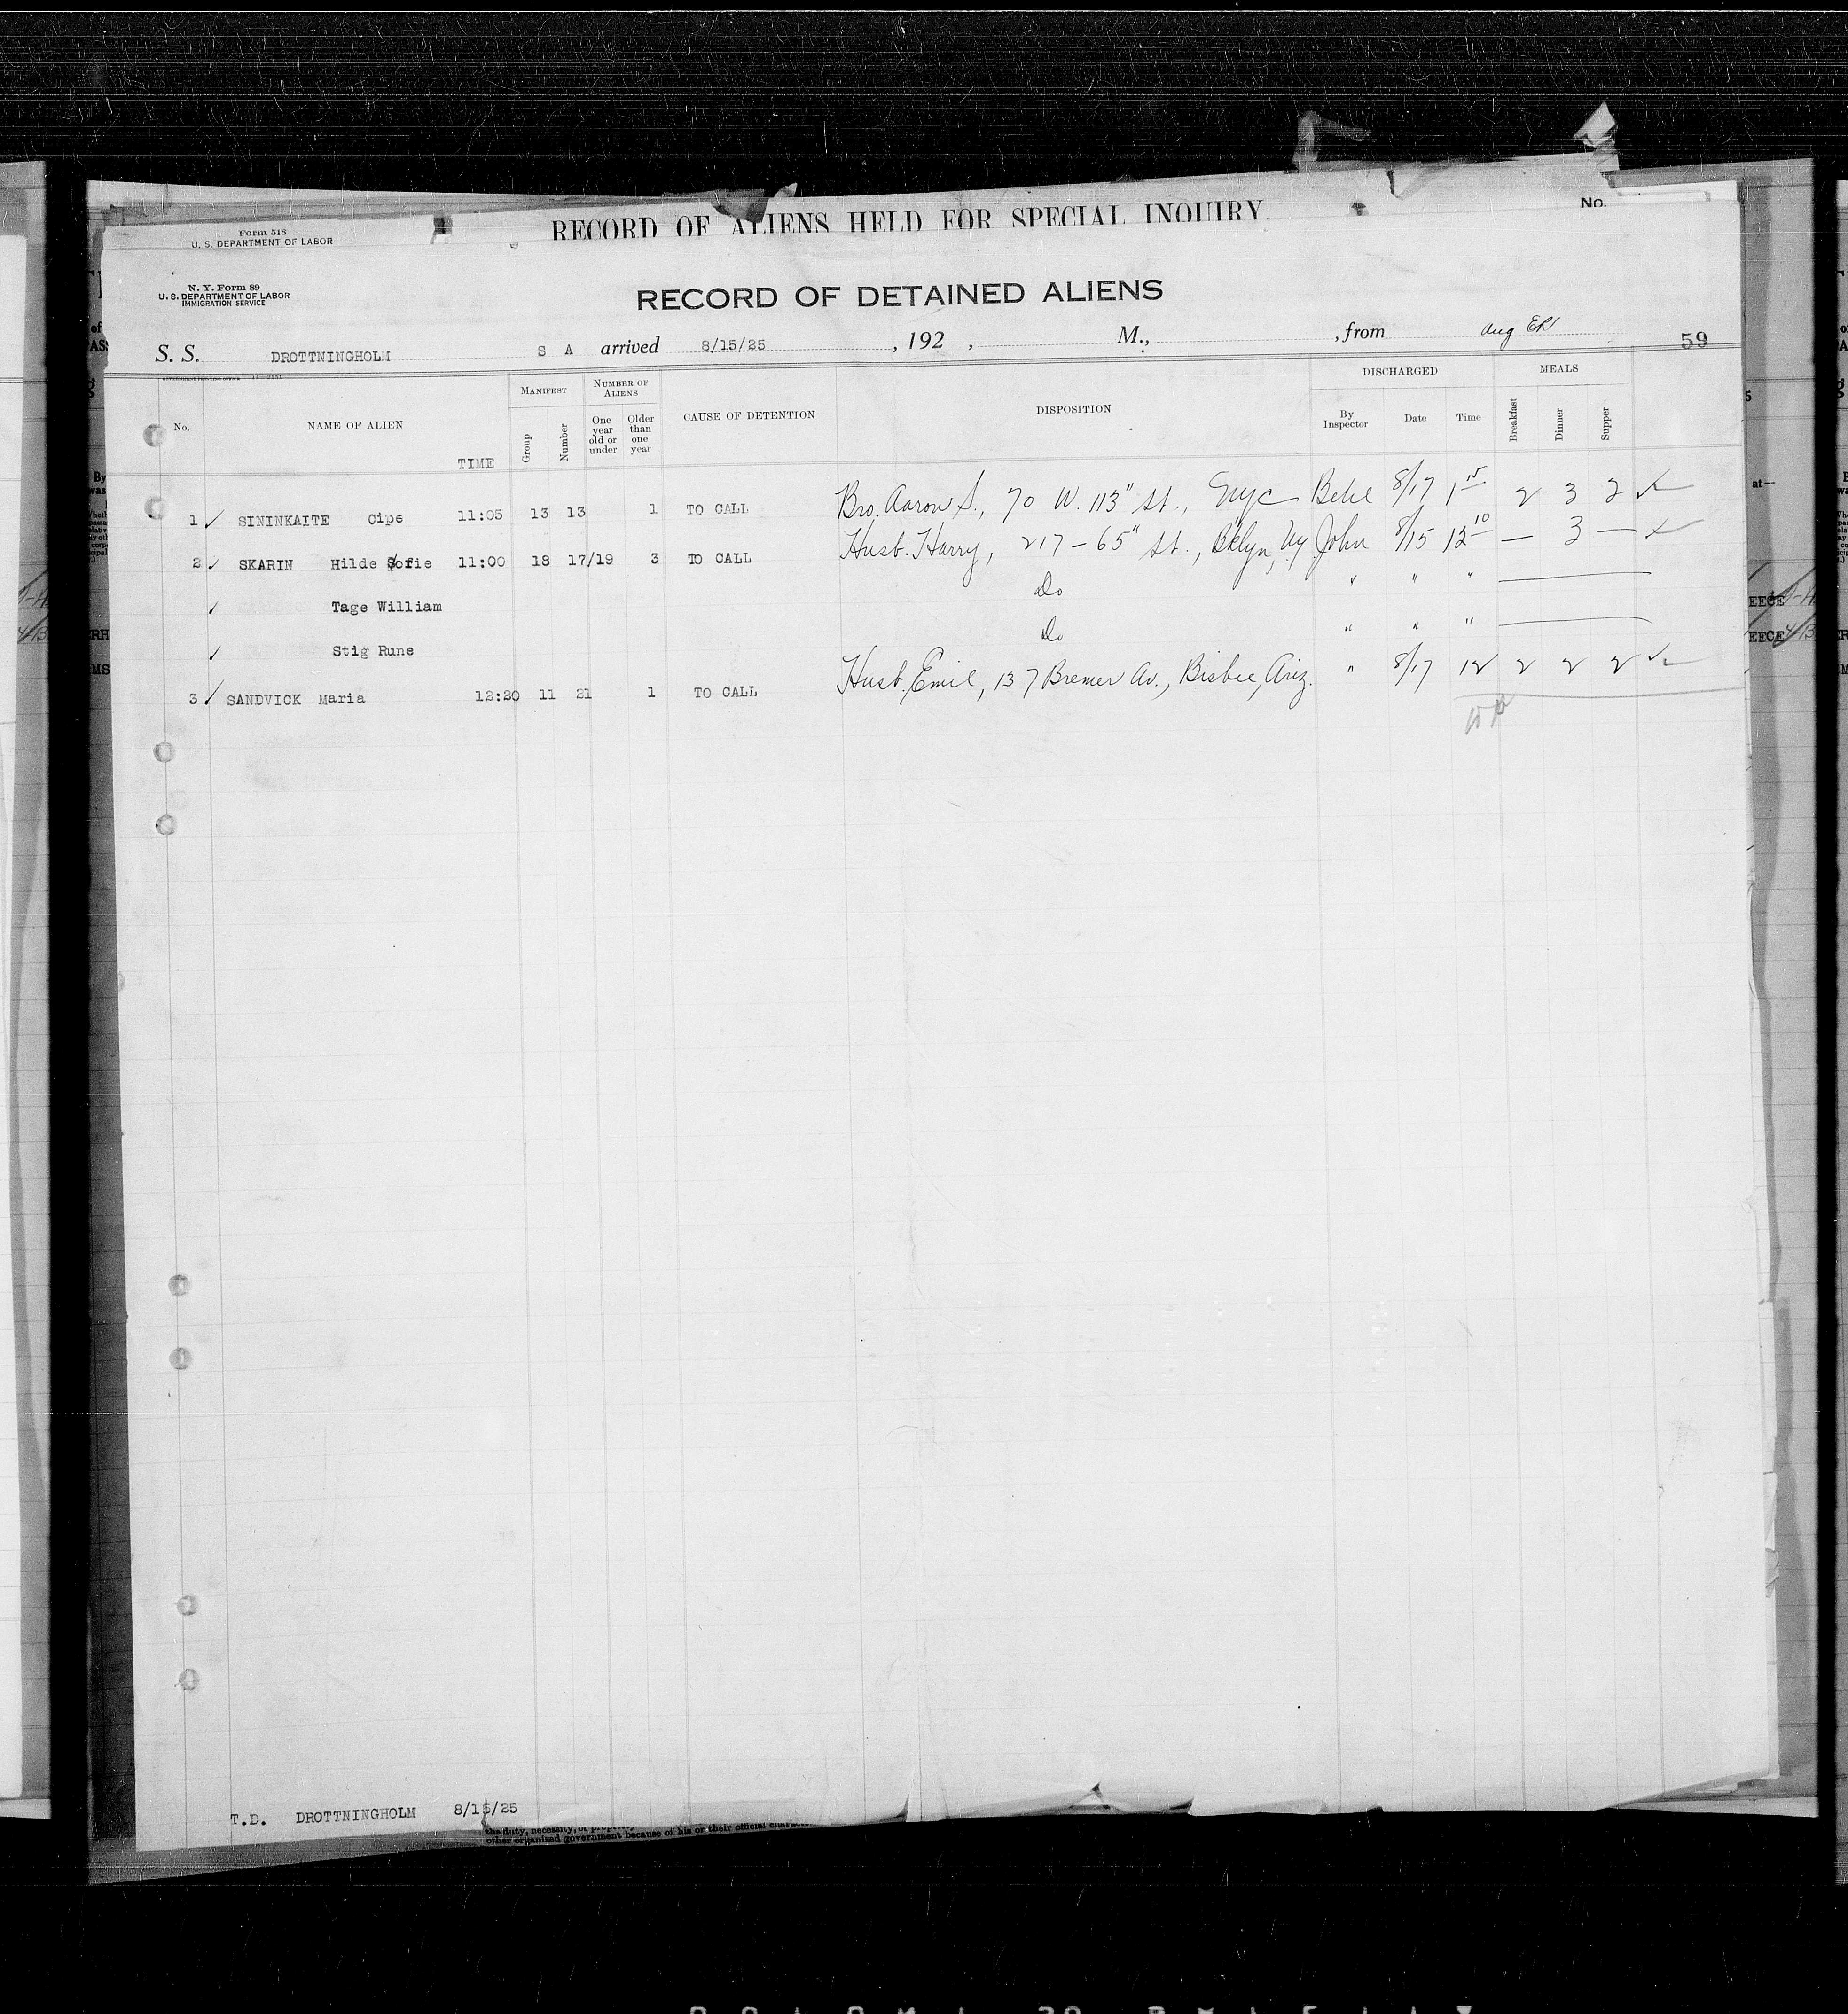 RECORD OF ALIENS HELD FOR SPECIAL INQUIRY
No.
Form 518
U. S. DEPARTMENT OF LABOR
N. Y. Form 89
U. S. DEPARTMENT OF LABOR
IMMIGRATION SERVICE
RECORD OF DETAINED ALIENS
S. S. DROTTNINGHOLM S A arrived 8/15/25, 192 , M., , from Aug 59
No. NAME OF ALIEN TIME MANIFEST Group Number NUMBER OF ALIENS One year old or under Older than one year CAUSE OF DETENTION DISPOSITION DISCHARGED By Inspector Date Time MEALS Breakfast Dinner Supper
1 ✓ SININKAITE Cipe 11:05 13 13 1 TO CALL Bro. Aaron S., 70 W. 113" St., NYC 8/17 1 15 2 3 2
2 ✓ SKARIN Hilde Sofie 11:00 18 17/19 3 TO CALL Husb. Harry, 217 - 65" St., Bklyn, NY John 8/15 12 10 — 3 —
✓ Tage William Do " " "
✓ Stig Rune Do " " "
3 ✓ SANDVICK Maria 12:20 11 21 1 TO CALL Husb. Emil, 137 Bremer Av., Bisbee, Ariz. " 8/17 12 2 2 2
T.D. DROTTNINGHOLM 8/15/25
other organized government because of his or their official